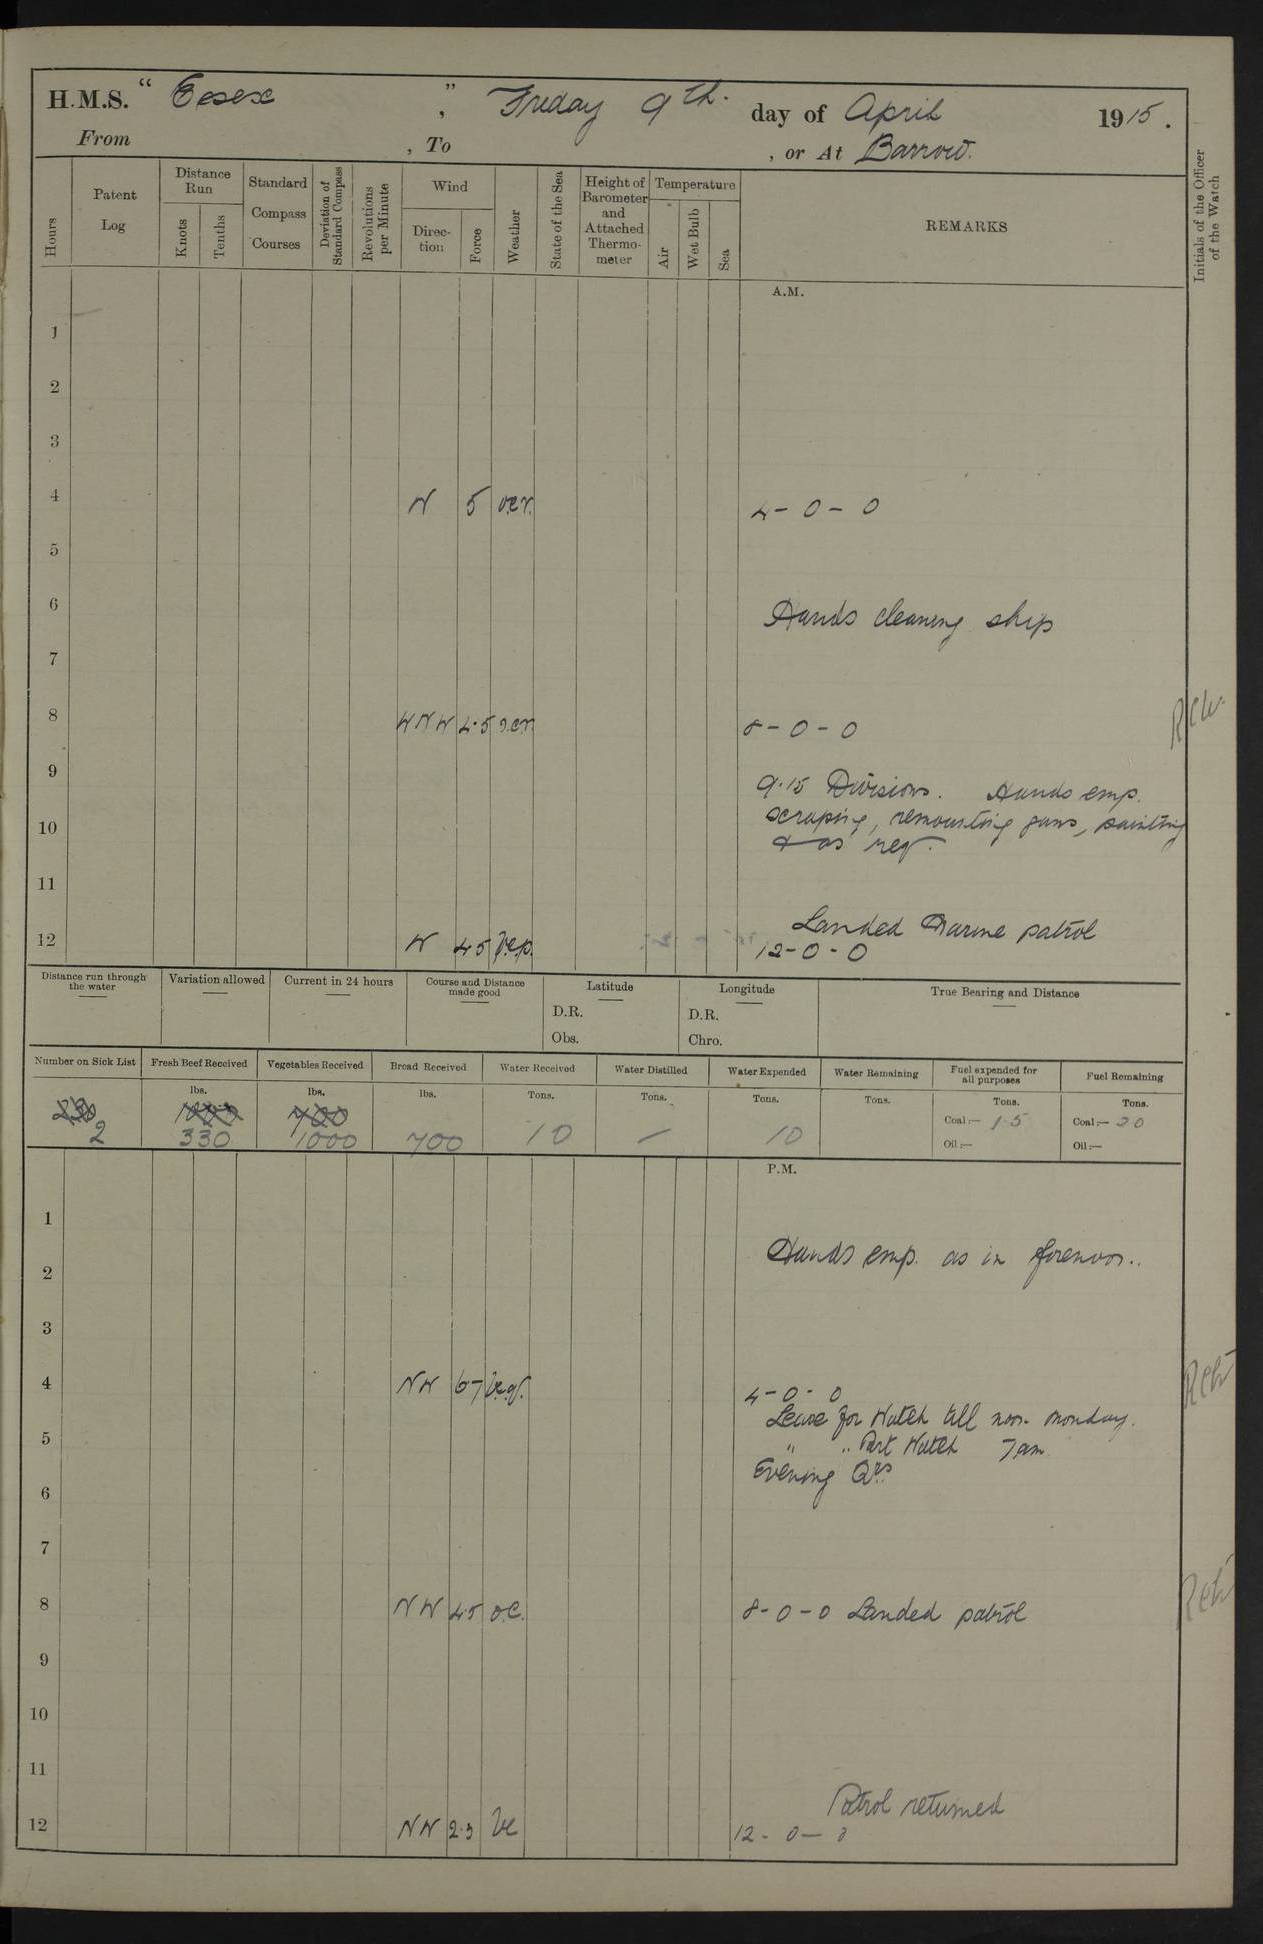 H.M.S. “ Essex ”, Friday 9th. day of April 1915.
From , To , or At Barrow.
Hours
Patent Log
Distance Run
Knots
Tenths
Standard Compass Courses
Deviation of Standard Compass
Revolutions per Minute
Wind
Direc-tion
Force
Weather
State of the Sea
Height of Barometer and Attached Thermo-meter
Temperature
Air
Wet Bulb
Sea
REMARKS
Initials of the Officer of the Watch
A.M.
1
2
3
4 W 5 4 - 0 - 0
5
6 Hands cleaning ship
7
8 WNW 4.5 8 - 0 - 0
9 9.15 Divisions. Hands emp.
10 scraping, remounting guns, painting
& as req.
11
Landed Marine patrol
12 W 4.5 12 - 0 - 0
Distance run through the water
Variation allowed
Current in 24 hours
Course and Distance made good
Latitude
D.R.
Obs.
Longitude
D.R.
Chro.
True Bearing and Distance
Number on Sick List
Fresh Beef Received
Vegetables Received
Bread Received
Water Received
Water Distilled
Water Expended
Water Remaining
Fuel expended for all purposes
Fuel Remaining
lbs. lbs. lbs. Tons. Tons. Tons. Tons. Tons. Tons.
700 Coal:— 15 Coal:— 20
2 330 1000 700 10 — 10 Oil:— Oil:—
P.M.
1
Hands emp. as in forenoon.
2
3
4 NW 6-7 4 - 0 - 0
Leave for Watch till noon Monday.
5 " " Part Watch 7am
Evening Qrs
6
7
8 NW 4.5 o.c. 8 - 0 - 0 Landed patrol
9
10
11
Patrol returned
12 NW 2.3 bc 12 - 0 - 0